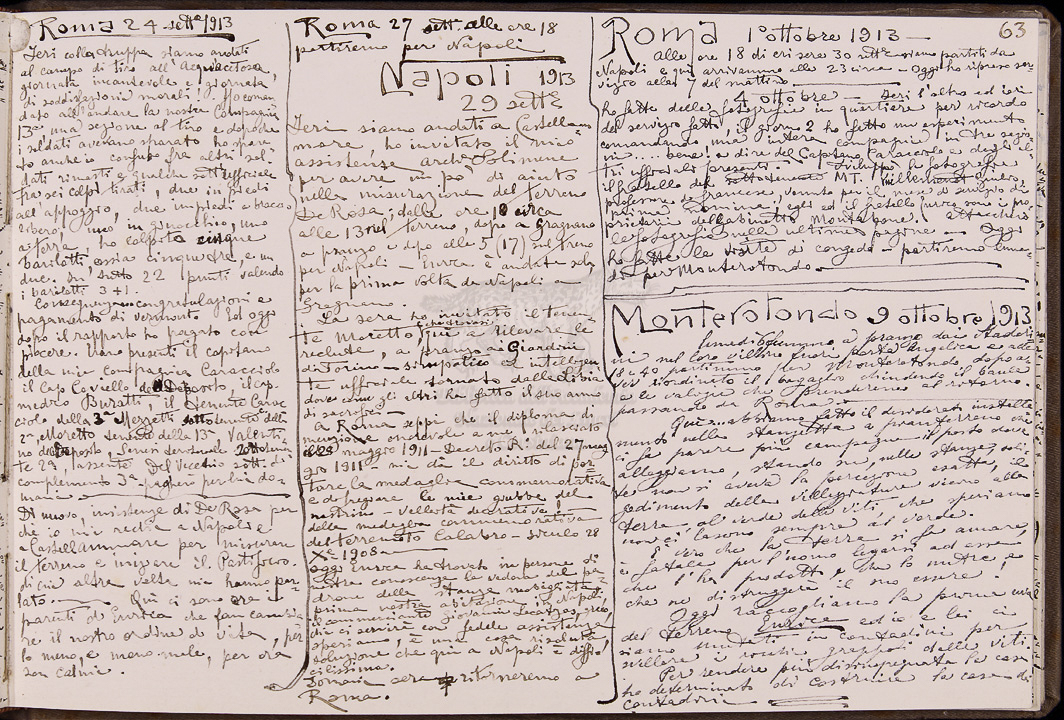 63
Roma 24 sett.e 1913
Ieri colla truppa siamo andati
al campo di tiro all'Acquacetosa,
giornata incantevole, giornata
di soddisfazioni morali. Ho coman
dato all'andare la nostra Compagnia
13a, una sezione al tiro e dopo che
i soldati avevano sparato ho spara
to anch'io confuso fra altri sol
dati rimasti e qualche sott'ufficiale
fra sei colpi tirati, due in piedi
all'appoggio, due in piedi a braccio
libero, uno in ginocchio, uno
a terra, ho colpito cinque
barilotti ossia cinque tre, e un
due. In tutto 22 punti valendo
i barilotti 3+1.
congratulazioni e
pagamento di vermouth. Ed oggi
dopo il rapporto ho pagato con
piacere. Erano presenti il capitano
della mia compagnia Caracciolo
il Cap. Coviello del Deposito, il cap.
medico Buratti, il Tenente Carac
ciolo della 3a Mezzetti sottotenente della
2a, Moretto Tenente della 13a Valenti
no deposito,
te 2a, assente Del Vecchio sott. di
complemento 3a pagherò per lui do
mani.
Di nuovo, insistenze di De Rosa per
che io mi rechi a Napoli e
a Castellammare per misurare
il terreno e iniziare il Partifuoco.
di cui altra volta mi hanno par
lato. Qui ci sono ora i
parenti di Enrica che fan cambia
re il nostro ordine di vita, per
lo meno, e meno male, per ora
son calmi.
Roma 27 sett. alle ore 18
partiremo per Napoli
Napoli 1913
29 sett.e
Ieri siamo andati a Castellam
mare, ho invitato il mio
assistente arch. Solimene
per avere un po' di aiuto
nella misurazione del terreno
De Rosa, dalle ore 10 circa
alle 13 nel terreno, dopo a Gragnano
a pranzo e dopo alle 5 (17) sul treno
per Napoli – Enrica è andata solo
per la prima volta da Napoli a
Gragnano.
La sera ho invitato il tenen
te Moretto, qui a rilevare le
reclute, a pranzo ai Giardini
di Torino – simpatico e intelligen
te ufficiale tornato dalla Libia
dove come gli altri ha fatto il suo anno
di sacrifici.
A Roma seppi che il diploma di
menzione onorevole a me rilasciato
il 28 maggio 1911 – Decreto R. del 27 mag
gio 1911 – mi dà il diritto di por
tare la medaglia commemorativa
e di fregiare la mia giubba del
nastrino – velleità decorative!,
della medaglia commemorativa
del terremoto Calabro-Siculo 28
Xe 1908
oggi Enrica ha trovato in persona di
altra conoscenza la vedova del pa
drone della stanza mobigliata
prima nostra abitazione in Napoli,
il commerciante giovane Lecatzas, greco,
che ci servirà con fedele assistenza
speri , è una cosa risoluta
soluzione che qui a Napoli è diffi
cilissima.
Domani sera ritorneremo a
Roma.
Roma 1° ottobre 1913 –
Alle ore 18 di ieri sera 30 sett.e siamo partiti da
Napoli e qui arrivammo alle 23 circa – Oggi ho ripreso ser
vizio alle 7 del mattino.
4 ottobre – Ieri l'altro ed ieri
ho fatto delle fotografie in quartiere per ricordo
del servizio fatto, il giorno 2 ho fatto un esperimento
comandando una intera compagnia in tre sezio
ni... bene, a dire del Capitano Caracciolo e degli al
tri ufficiali presenti – Sviluppo le fotografie
il fratello del MT.
professore di francese venuto per il mese di servizio di
prima nomina, egli ed il fratello Enrico sono i pro
prietari della Ditta Montabone. Attaccherò
le fotografie nelle ultime pagine – Oggi
ho fatte le visite di congedo – partiremo lune
dì per Monterotondo –
Monterotondo 9 ottobre 1913
Lunedì fummo a pranzo dai Stader
ini nel loro villino fuori porta Angelica ed alle
18 e 40 partimmo per Monterotondo, dopo a
ver riordinato il bagaglio dividendo il baule
e le valigie che prenderemo al ritorno
passando da Roma.
Qui... abbiamo fatto il dovere di installa
mento nella stanzetta a pianterreno che
ci fa parere più campagna il posto dove
alloggiamo – stando su, nelle stanze, soli
te non si aveva la percezione esatta, il
godimento della villeggiatura vicino alla
terra, al verde delle viti, che speriamo
non ci lascino sempre al verde.
È vero che la terra si fa amare,
è fatale per l'uomo legarsi ad essa
che l'ha prodotto, che lo nutre, e
che ne distruggerà il suo essere.
Oggi raccogliamo la prima uva
del terreno. Enrica ed io e la ci
siamo mutati in contadini per
svellere i grappoli dalle viti.
Per rendere più disimpegnata la casa
ho determinato di costruire la casa di
contadini